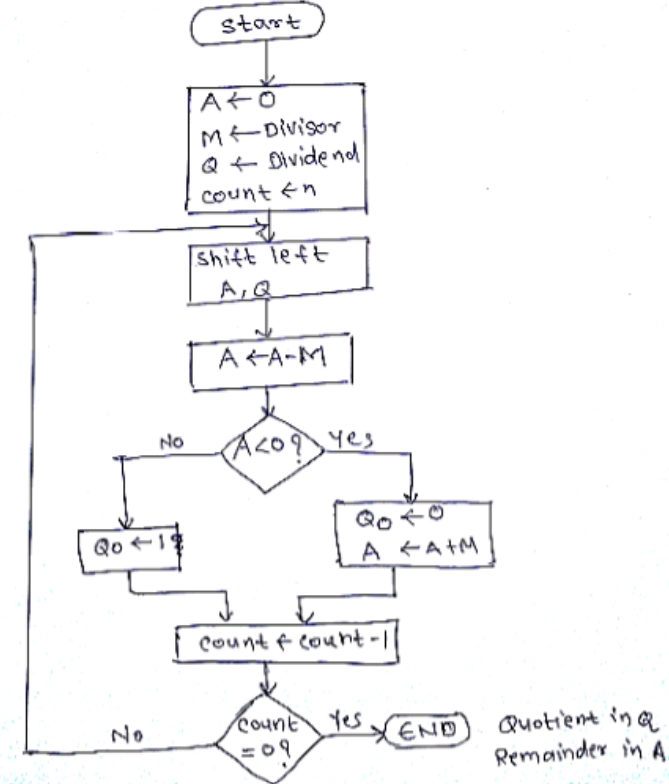 Start
A ← 0
M ← Divisor
Q ← Dividend
count ← n
Shift left
A, Q
A ← A-M
A<0?
No
Yes
Q0 ← 1
Q0 ← 0
A ← A+M
count ← count-1
count
=0?
No
Yes
END
Quotient in Q
Remainder in A